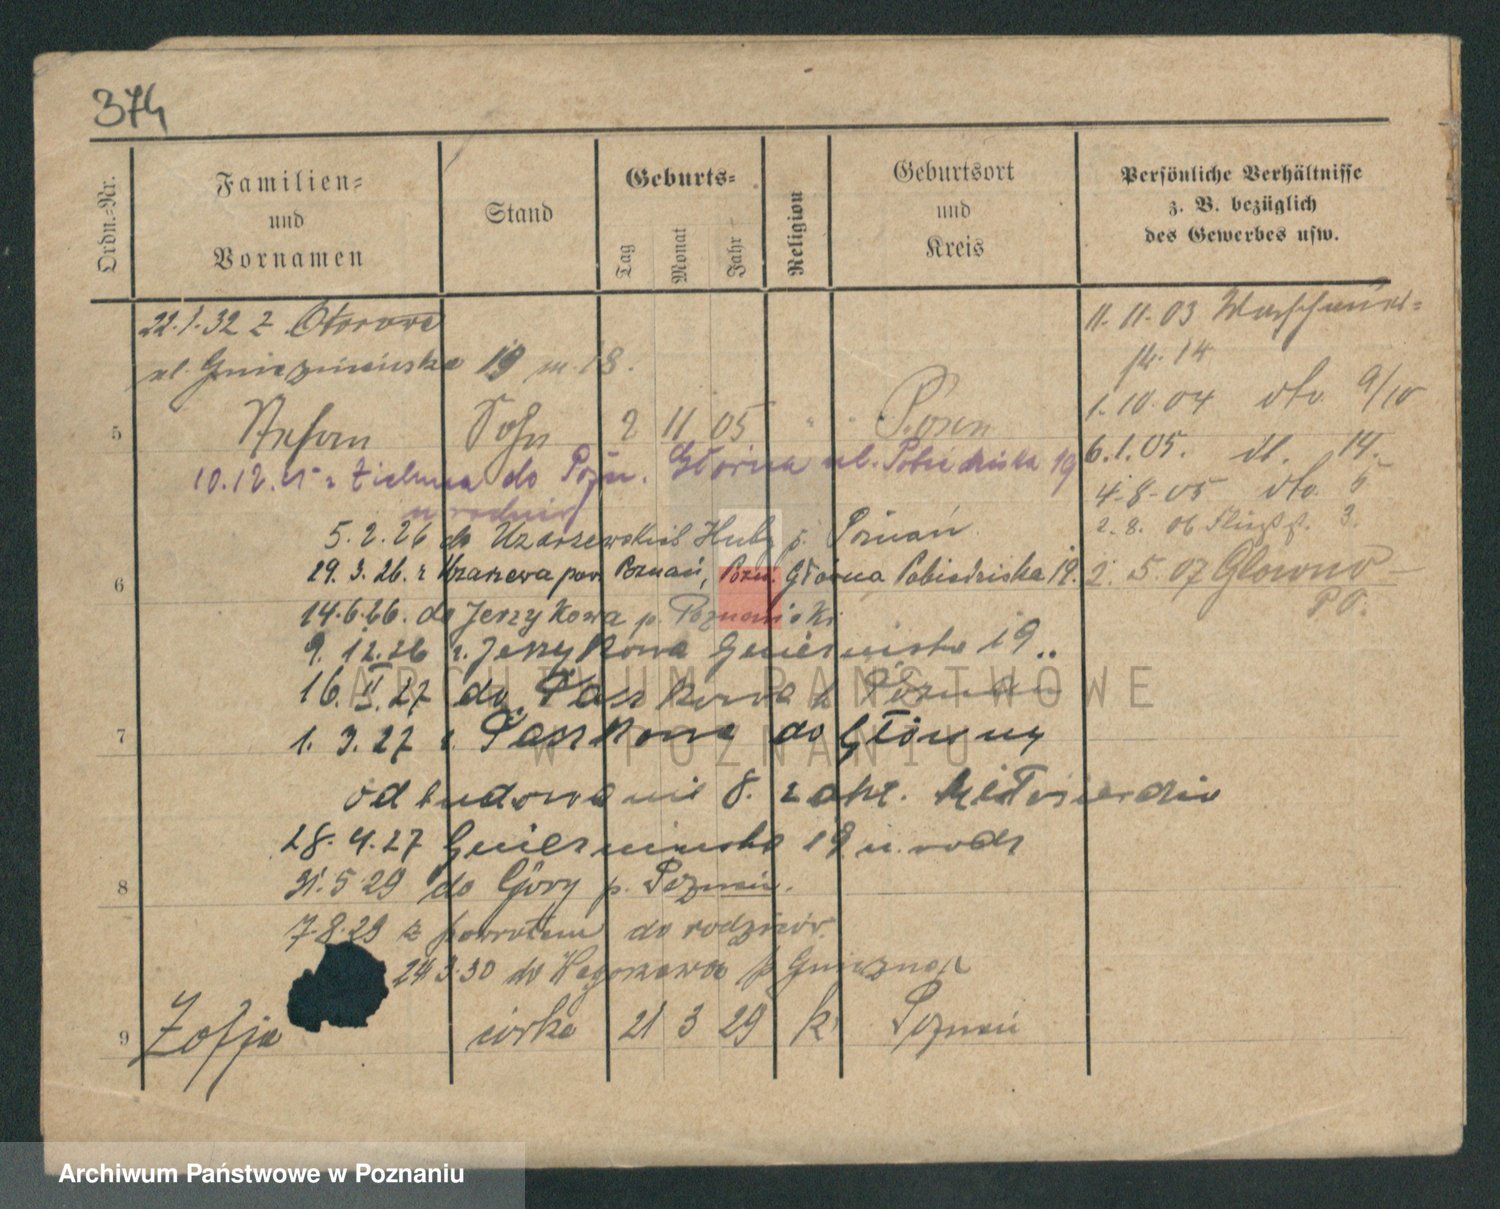 374
Ordn.-Nr.
Familien-
und
Vornamen
Stand
Geburts-
Tag
Monat
Jahr
Religion
Geburtsort
und
Kreis
Persönliche Verhältnisse
z. B. bezüglich
des Gewerbes usw.
22.1.32 z Otorowa
ul. Gnieznieńska 19 m 18.
11.11.03
14
1.10.04 dto 9/10
5 Sohn 2 11 05 Posen
6.1.05. 14.
10.12.25 z Zielińca do Pozn. Główna ul. Pobiedziska 19
4.8.05 dto 5
2.8.06 3.
5.2.26 do p. Poznań
6 29.3.26. z Uzarzewa pow. Poznań, Pozn. Główna Pobiedziska 19.
2.5.07 Glowno
14.6.26. do Jerzykowa p. Poznański
9.12.26 z. Jerzykowa Gnieźnieńska 19
16.II.27 do
7 1.3.27 z. do Główny
28.4.27 Gnieźnieńska 19 u. rodz
8 31.5.29 do Góry p. Poznań.
7.8.29 z powrotem do rodziców.
24.3.30 do p Gniezna
9 Zofja córka 21 3 29 k Poznań
ARCHIWUM PAŃSTWOWE
W POZNANIU
Archiwum Państwowe w Poznaniu